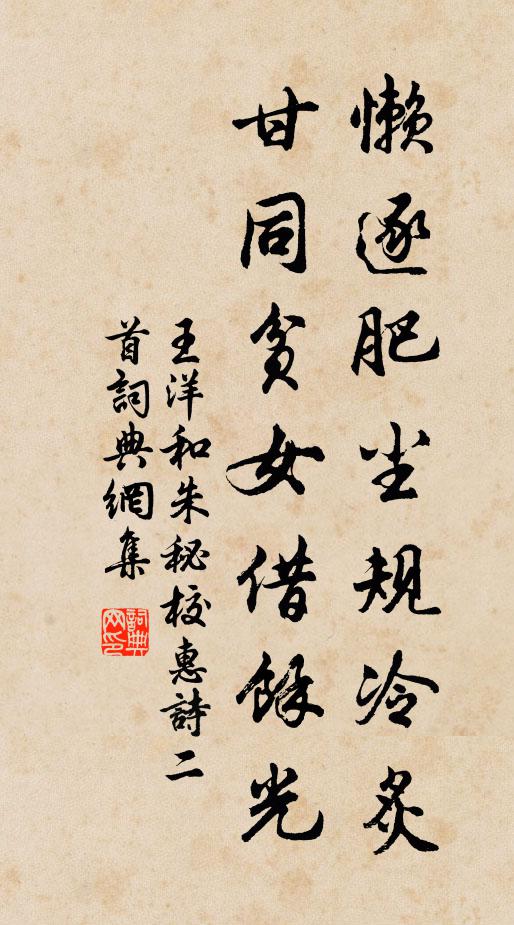 懶逐肥尘規冷炙
甘同貧女借餘光
王洋和朱秘校惠詩二
首詞典網集
詞典
网印